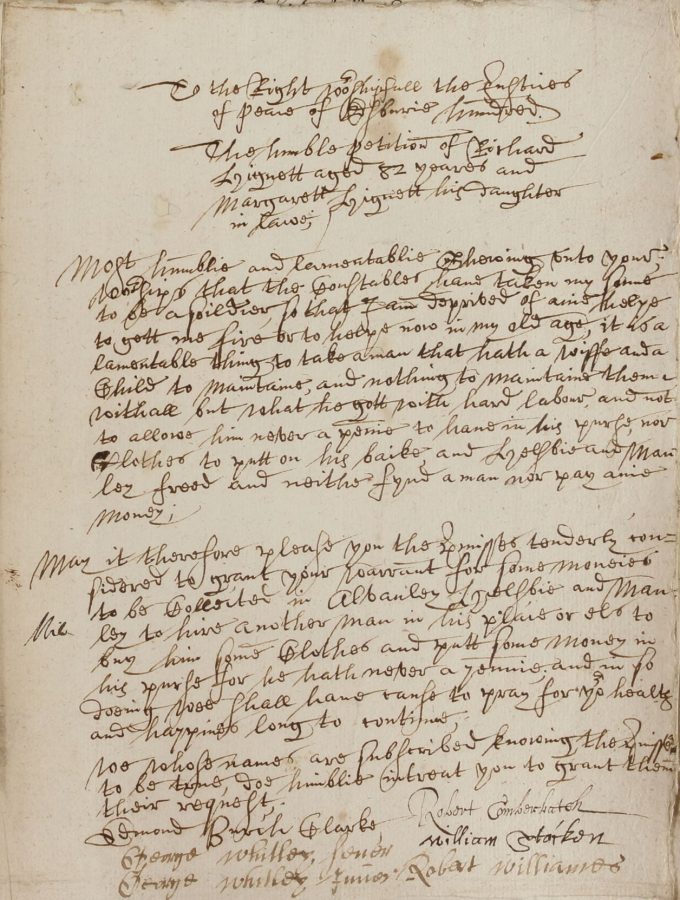 To the Right wor:shipfull the Justices
of Peace of Edsburie hundred.
The humble Petition of Richard
Hignett aged 82 yeares and
Margarett Hignett his daughter
in lawe;
Most humblie and lamentablie Shewing unto your
wor:ships that the Constables have taken my sonne
to be a soildier, so that I am deprived of anie helpe
to gett me fire or to helpe now in my old age, it is a
lamentable thing to take a man that hath a wiffe and a
Child to maintaine and nothing to maintaine them
withall but what he gott with hard labour, and not
to allowe him never a penie to have in his purse nor
Clothes to putt on his backe and Helsbie and Man
ley freed and neithe fynd a man nor pay anie
money;
May it therefore please you the Pmisses tenderly con=
sidered to grant your warrant for some moneies
to be Collected in Alvanley Helsbie and Man=
Nil
ley to hire another man in his place or els to
buy him some Clothes and putt some money in
his purse for he hath never a pennie, and in so
doeing wee shall have cause to pray for yor health
and happines long to continue;
We whose names are subscribed knowing the Pmisses
to be true doe humblie intreat you to grant them
their request.
Edmond Clarke
Robert Comberbatch
William Stocken
George Whitley, senor
George Whitley Junior Robert Williames